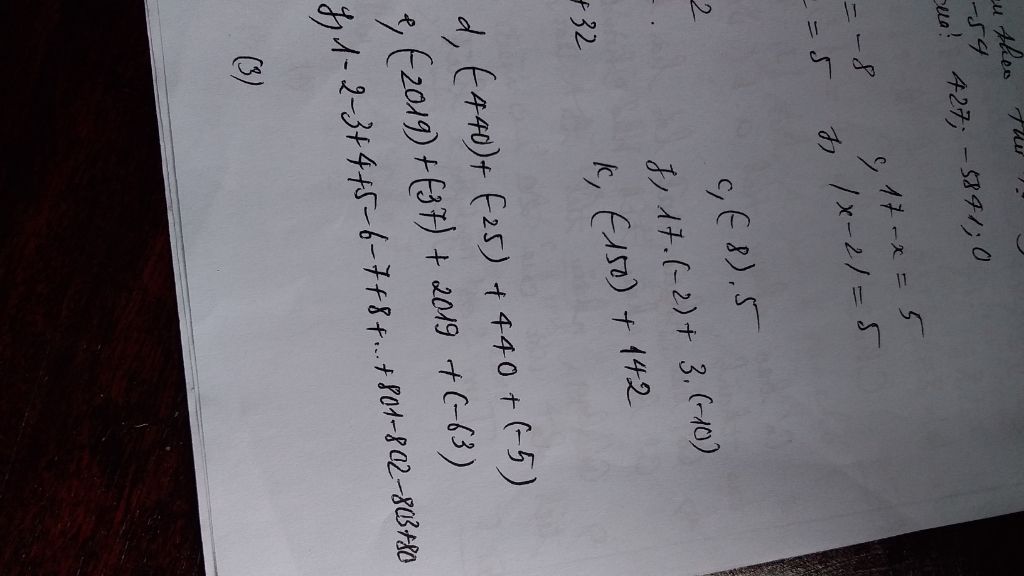 -54 427; -5841; 0
= -8 c, 17 - x = 5
= 5 f, |x - 2| = 5
2 c, (-8).5
f, 17.(-2) + 3.(-10)
+32 k, (-150) + 142
d, (-440) + (-25) + 440 + (-5)
e, (-2019) + (-37) + 2019 + (-63)
f, 1 - 2 - 3 + 4 + 5 - 6 - 7 + 8 + ... + 801 - 802 - 803 + 80
(3)